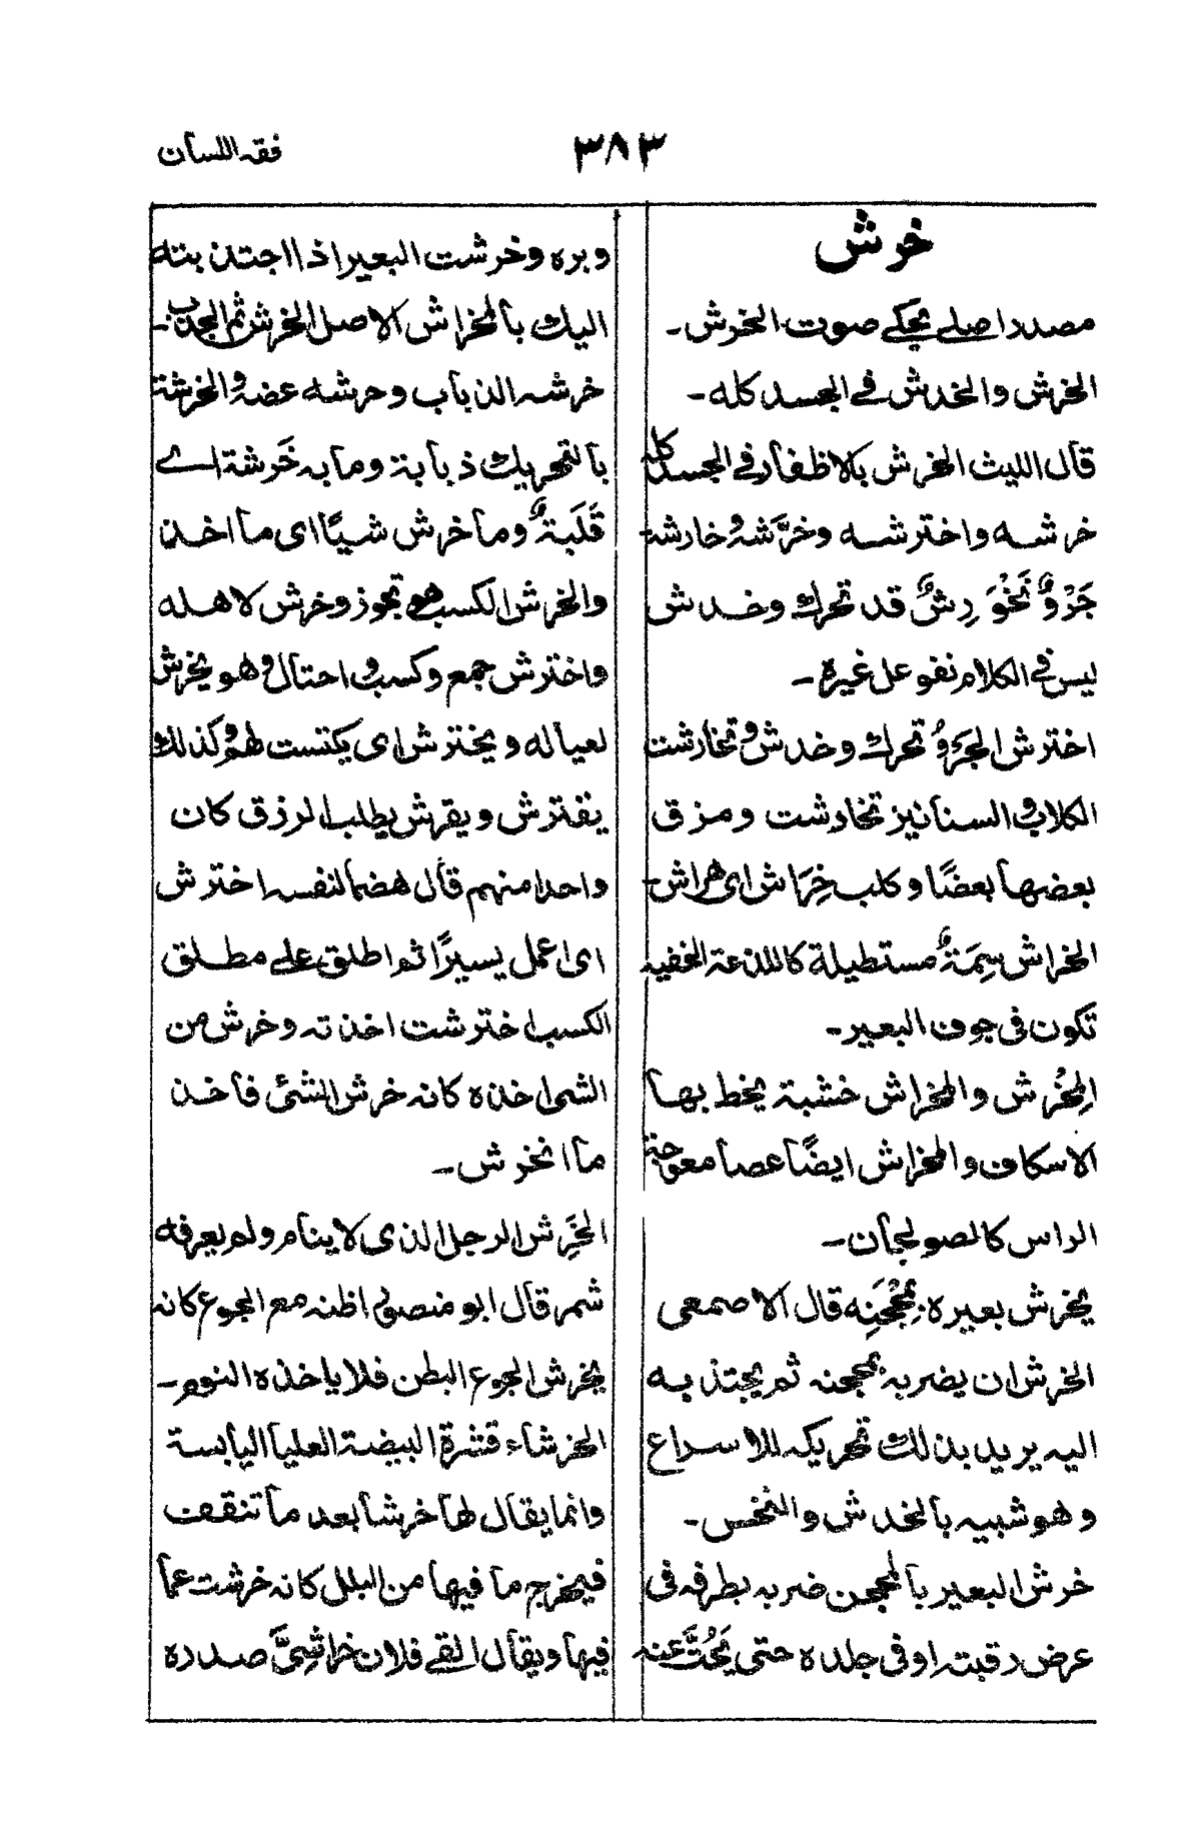 فقہ اللسان
۳۸۳
خرش
مصدر اصلے یحکے صوت الخرش ۔
الخرش والخدش فے الجسد کلہ ۔
قال اللیث الخرش بالاظفار فے الجسد کلہ
خرشہ واخترشہ وخرَّشہٗ وخارشہ
جَرْوٌ نَخْوَرِشٌ قد تحرك وخدش
لیس فی الکلام نفوعل غیرہ ۔
اخترش الجرَوُ تحرك وخدش وتخارشت
الکلاب والسنانیز تخادشت ومزق
بعضہا بعضًا وکلب خِرَاش ای ھراش ۔
الخراش سِمَۃٌ مستطیلۃ کاللذعۃ الخفیہ
تکون فی جوف البعیر ۔
اِلمِخْرش والمخراش خشبۃ یخط بہا
الاسکاف والمخراش ایضًا عصا معوجۃ
الراس کالصولجان ۔
یخرش بعیرہ بِمِحْجَنِہ قال الاصمعی
الخرش ان یضربہ بمحجنہ ثم یجتذبہ
الیہ یرید بذلك تحریکہ للاسراع
وھو شبیہ بالخدش والنخس ۔
خرش البعیر بالمحجن ضربہ بطرفہ فی
عرض رقبتہ اوفی جلدہ حتی یَحُتَّ عنہ
وبرہ وخرشت البعیر اذا اجتذبتہ
الیك بالمخراش الاصل الخرش ثم الجذب ۔
خرشہ الذباب وحرشہ عضہ والخرشۃ
بالتحریك ذبابۃ ومابہ خَرشۃ اے
قَلَبۃٌ وما خرش شیًا ای ما اخذ
والخرش الکسب ھو تجوز وخرش لاھلہ
واخترش جمع وکسب واحتال وھو یخرش
لعیالہ ویخترش ای یکتسب لھم وکذلك
یقترش ویقرش یطلب الرزق کان
واحدا منہم قال ھضما لنفسہ اخترش
ای اعمل یسیرًا ثم اطلق علے مطلق
الکسب اخترشت اخذتہ وخرش من
الشئ اخذہ کانہ خرش الشئ فاخذ
ما انخرش ۔
الخَرِش الرجل الذی لاینام ولم یعرفہ
شمر قال ابو منصور اظنہ مع الجوع کانہ
یخرش الجوع البطن فلا یاخذہ النوم ۔
الخرشاء قشرۃ البیضۃ العلیا الیابسۃ
وانما یقال لھا خرشا بعد ما تنقف
فیخرج ما فیہا من البلل کانہ خرشت عما
فیہا ویقال القے فلان خراشِیَّ صدرہ